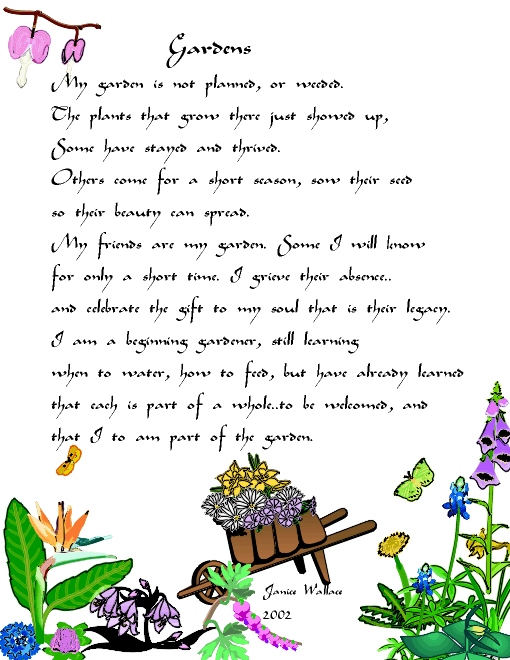 Gardens
My garden is not planned, or weeded.
The plants that grow there just showed up,
Some have stayed and thrived.
Others come for a short season, sow their seed
so their beauty can spread.
My friends are my garden. Some I will know
for only a short time. I grieve their absence..
and celebrate the gift to my soul that is their legacy.
I am a beginning gardener, still learning
when to water, how to feed, but have already learned
that each is part of a whole..to be welcomed, and
that I to am part of the garden.
Janice Wallace
2002